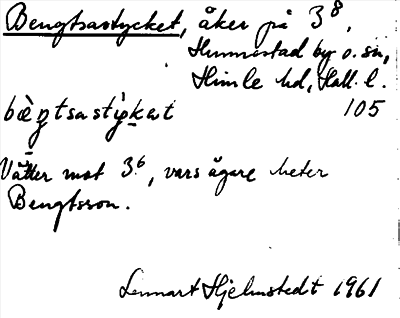 Bengtsastycket, åker på 3⁸,
Hunnestad by o. sn,
Himle hd, Hall. l.
bèŋtsastỳkət 105
Vätter mot 3⁶, vars ägare heter
Bengtsson.
Lennart Hjelmstedt 1961